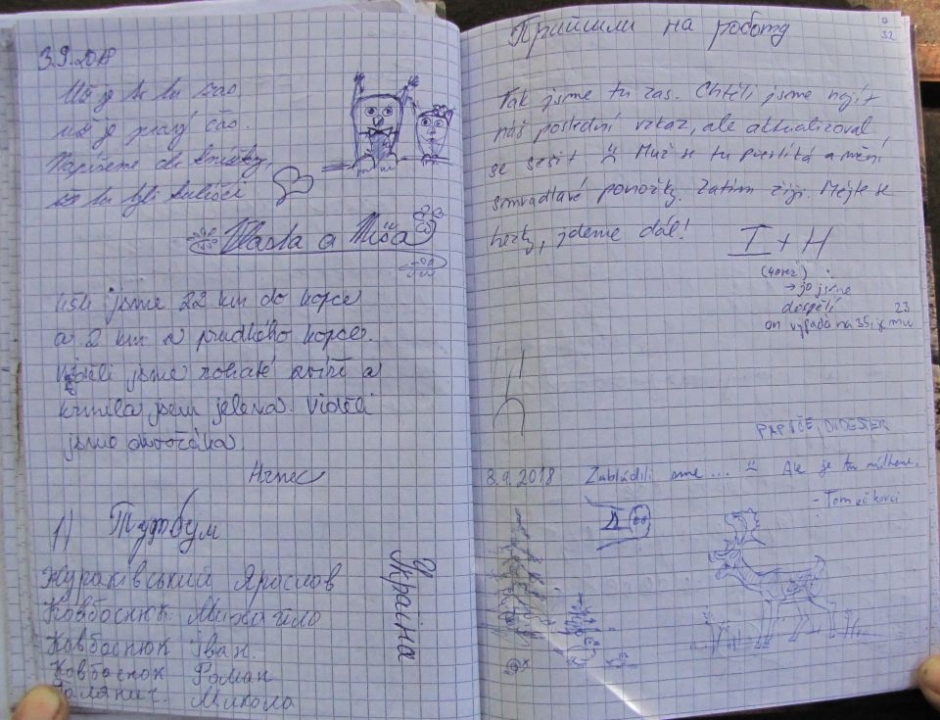 3.9.2018
Už je tu zas,
už je pravý čas.
Napíšeme do knížky,
že tu byli
Vlasta a Míša
Ušli jsme 22 km do kopce
a 2 km z prudkého kopce.
Viděli jsme rohaté zvíře a
krmila jsem jelena. Viděli
jsme
1) Тут були
Жураківський Ярослав
Ковбоснюк Михайло
Ковбоснюк Іван.
Ковбоснюк Роман
Микола
Україна
Прийшли на роботу
Tak jsme tu zas. Chtěli jsme najít
náš poslední vzkaz, ale aktualizoval
se sešit Muž se tu a mění
smradlavé ponožky. Zatím žiji. Mějte se
hezky, jdeme dál!
I + H
→ jo jsme
dospělí 23
on vypadá na 35, je mu
8.9.2018 Zabloudili sme.... Ale je tu
- Tomečkovci